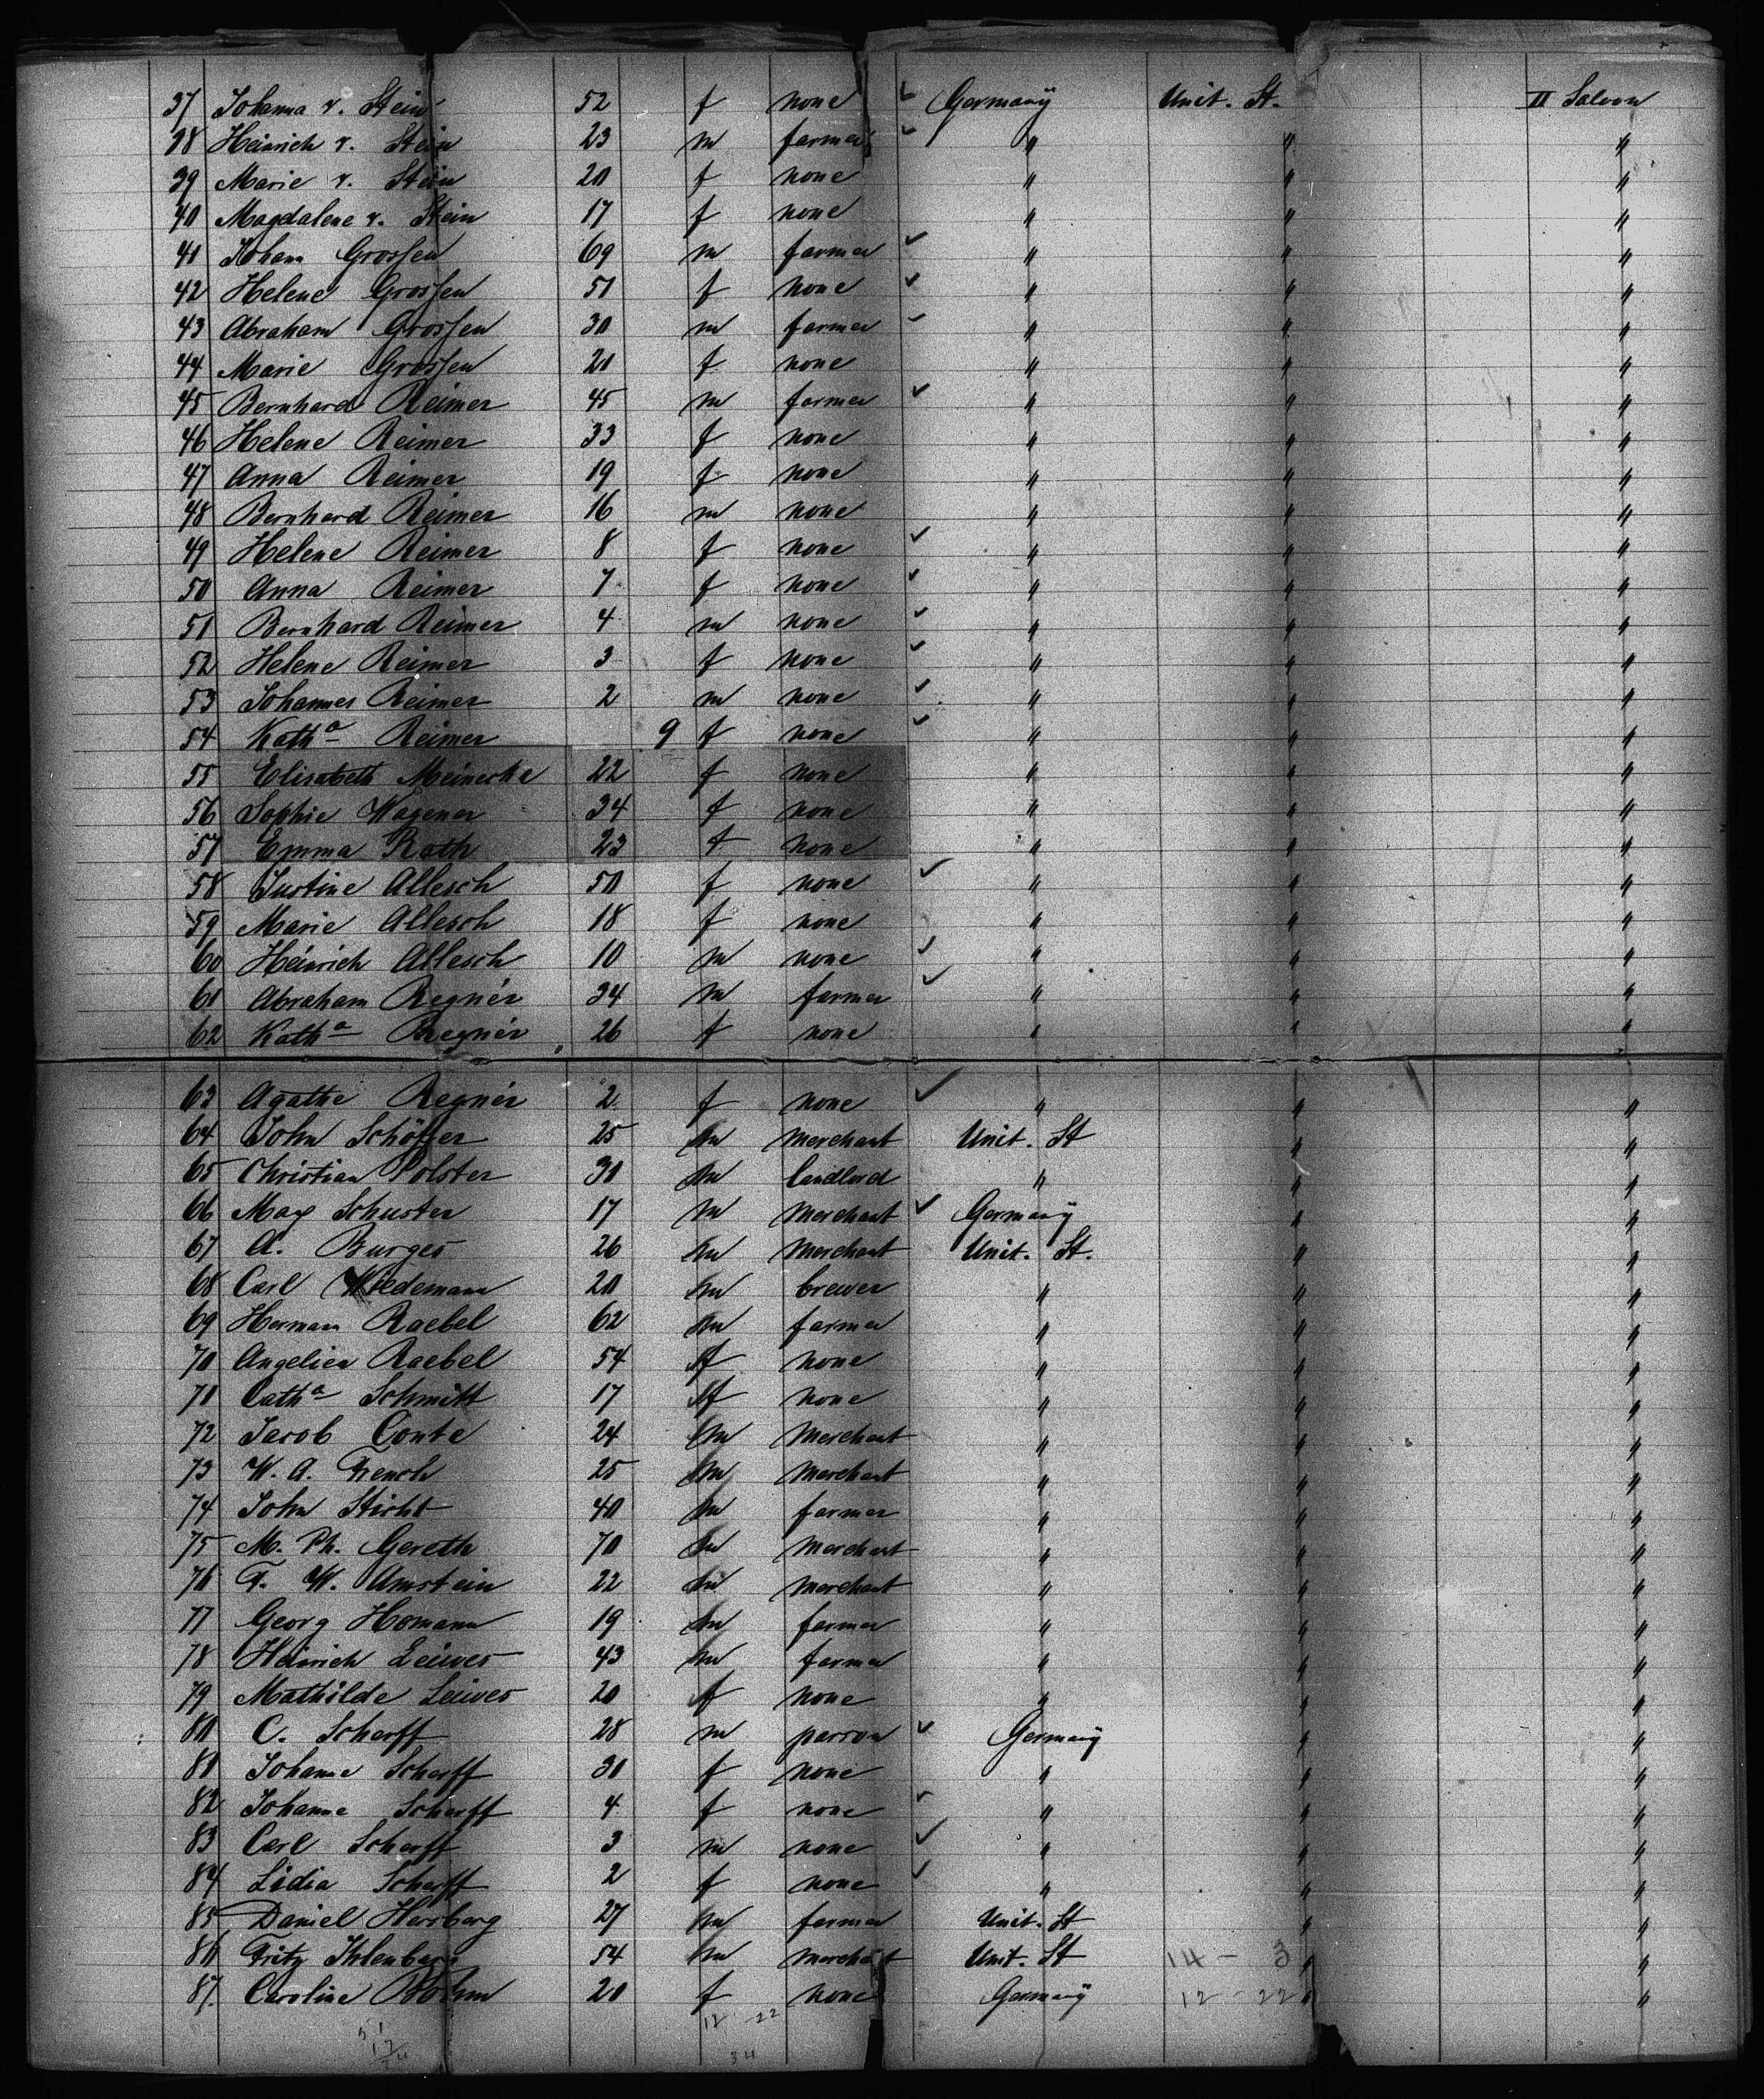 37 Johanna v. Stein 52 f none ✓ Germany Unit. St. II Saloon
38 Heinrich v. Stein 23 m farmer ✓ " " "
39 Marie v. Stein 20 f none " " "
40 Magdalene v. Stein 17 f none " " "
41 Johann Grossen 69 m farmer ✓ " " "
42 Helene Grossen 51 f none ✓ " " "
43 Abraham Grossen 30 m farmer ✓ " " "
44 Marie Grossen 20 f none " " "
45 Bernhard Reimer 45 m farmer ✓ " " "
46 Helene Reimer 33 f none " " "
47 Anna Reimer 19 f none " " "
48 Bernhard Reimer 16 m none " " "
49 Helene Reimer 8 f none ✓ " " "
50 Anna Reimer 7 f none ✓ " " "
51 Bernhard Reimer 4 m none ✓ " " "
52 Helene Reimer 3 f none ✓ " " "
53 Johannes Reimer 2 m none ✓ " " "
54 Kath<sup>a</sup> Reimer 9 f none ✓ " " "
55 Elisabeth Meinecke 22 f none " " "
56 Sophie Wagener 34 f none " " "
57 Emma Roth 23 f none " " "
58 Justine Allesch 50 f none ✓ " " "
59 Marie Allesch 18 f none " " "
60 Heinrich Allesch 10 m none ✓ " " "
61 Abraham Regnér 34 m farmer ✓ " " "
62 Kath<sup>a</sup> Regnér 26 f none " " "
63 Agathe Regnér 2 f none ✓ " " "
64 John Schöffer 25 m merchant Unit. St " "
65 Christian Polster 30 m landlord " " "
66 Max Schuster 17 m merchant ✓ Germany " "
67 A. Burges 26 m merchant Unit. St. " "
68 Carl Wiedemann 20 m brewer " " "
69 Herman Raebel 62 m farmer " " "
70 Angelica Raebel 54 f none " " "
71 Cath<sup>a</sup> Schmitt 17 f none " " "
72 Jacob Conte 24 m merchant " " "
73 W. A. French 25 m merchant " " "
74 John Sticht 40 m farmer " " "
75 M. Ph. Gereth 70 m merchant " " "
76 F. W. Amstein 22 m merchant " " "
77 Georg Homann 19 m farmer " " "
78 Heinrich Leiwes 43 m farmer " " "
79 Mathilde Leiwes 20 f none " " "
80 C. Scherff 28 m parson ✓ Germany " "
81 Johanne Scherff 30 f none " " "
82 Johanne Scherff 4 f none ✓ " " "
83 Carl Scherff 3 m none ✓ " " "
84 Lidia Scherff 2 f none ✓ " " "
85 Daniel Hersberg 27 m farmer Unit. St " "
86 Fritz 54 m merchant Unit. St 14 - 3 " "
87. Caroline Böhm 20 f none Germany 12 - 22 " "
12 - 22
34